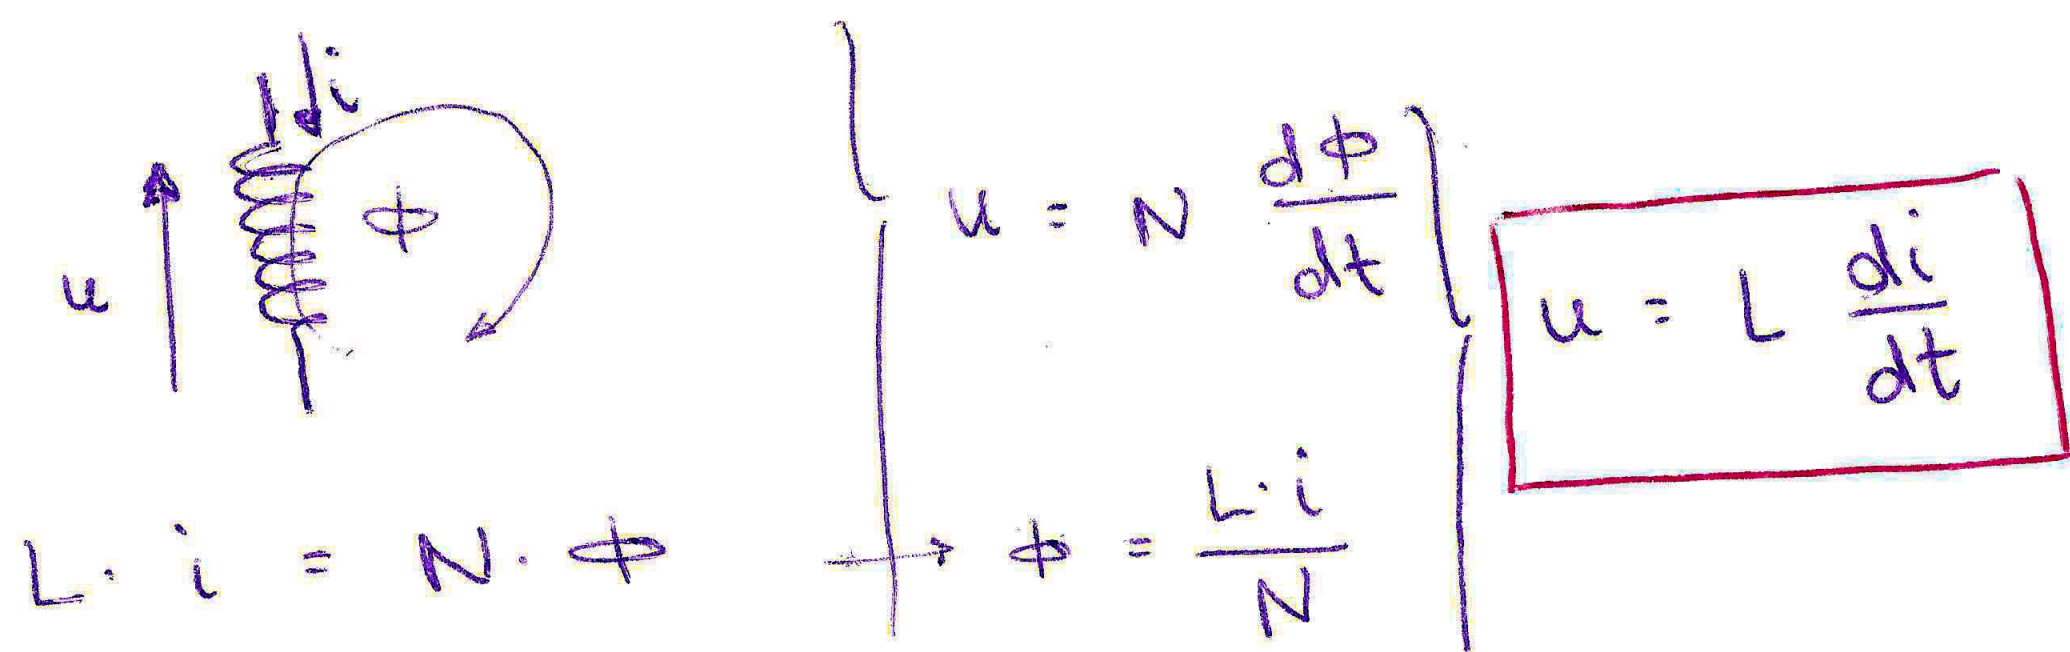 i
u
ϕ
L · i = N · ϕ
u = N dϕ/dt
→ ϕ = L · i / N
u = L di/dt